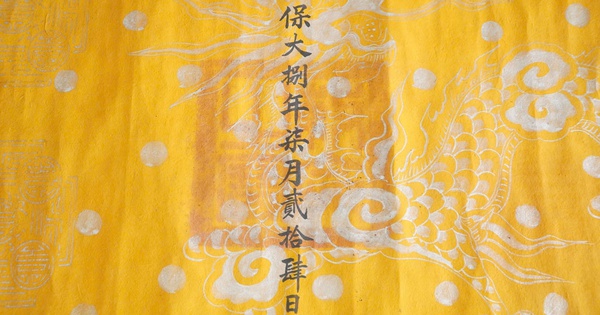 保大捌年柒月貳拾肆日